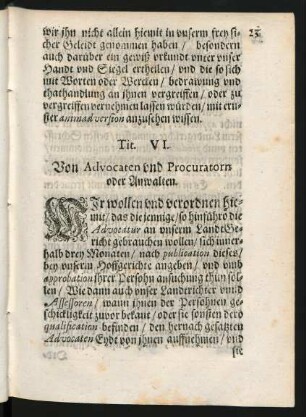 25
wir jhn nicht allein hiemit in vnserm frey si-
cher Geleidt genommen haben / besondern
auch darüber ein gewiß vrkundt vnter vnser
Handt vnd Siegel ertheilen / vnd die so sich
mit Worten oder Wercken / bedrawung vnd
thathandlung an jhnen vergreiffen / oder zu
vergreiffen vernehmen lassen würden / mit ern-
ster animadversion anzusehen wissen.
Tit. VI.
Von Advocaten vnd Procuratorn
oder Anwalten.
WIr wollen vnd verordnen hie-
mit / das die jennige / so hinführo die
Advocatur an vnserm LandtGe-
richt gebrauchen wollen / sich inner-
halb drey Monaten / nach publication dieses /
bey vnserm Hoffgerichte angeben / vnd vmb
approbation jhrer Persohn ansuchung thun sol-
len / Wie dann auch vnser Landtrichter vnnd
Assessoren / wann jhnen der Persohnen ge-
schickligkeit zuvor bekant / oder sie sonsten dero
qualification befinden / den hernach gesatzten
Advocaten Eydt von jhnen auffnehmen / vnd
sie